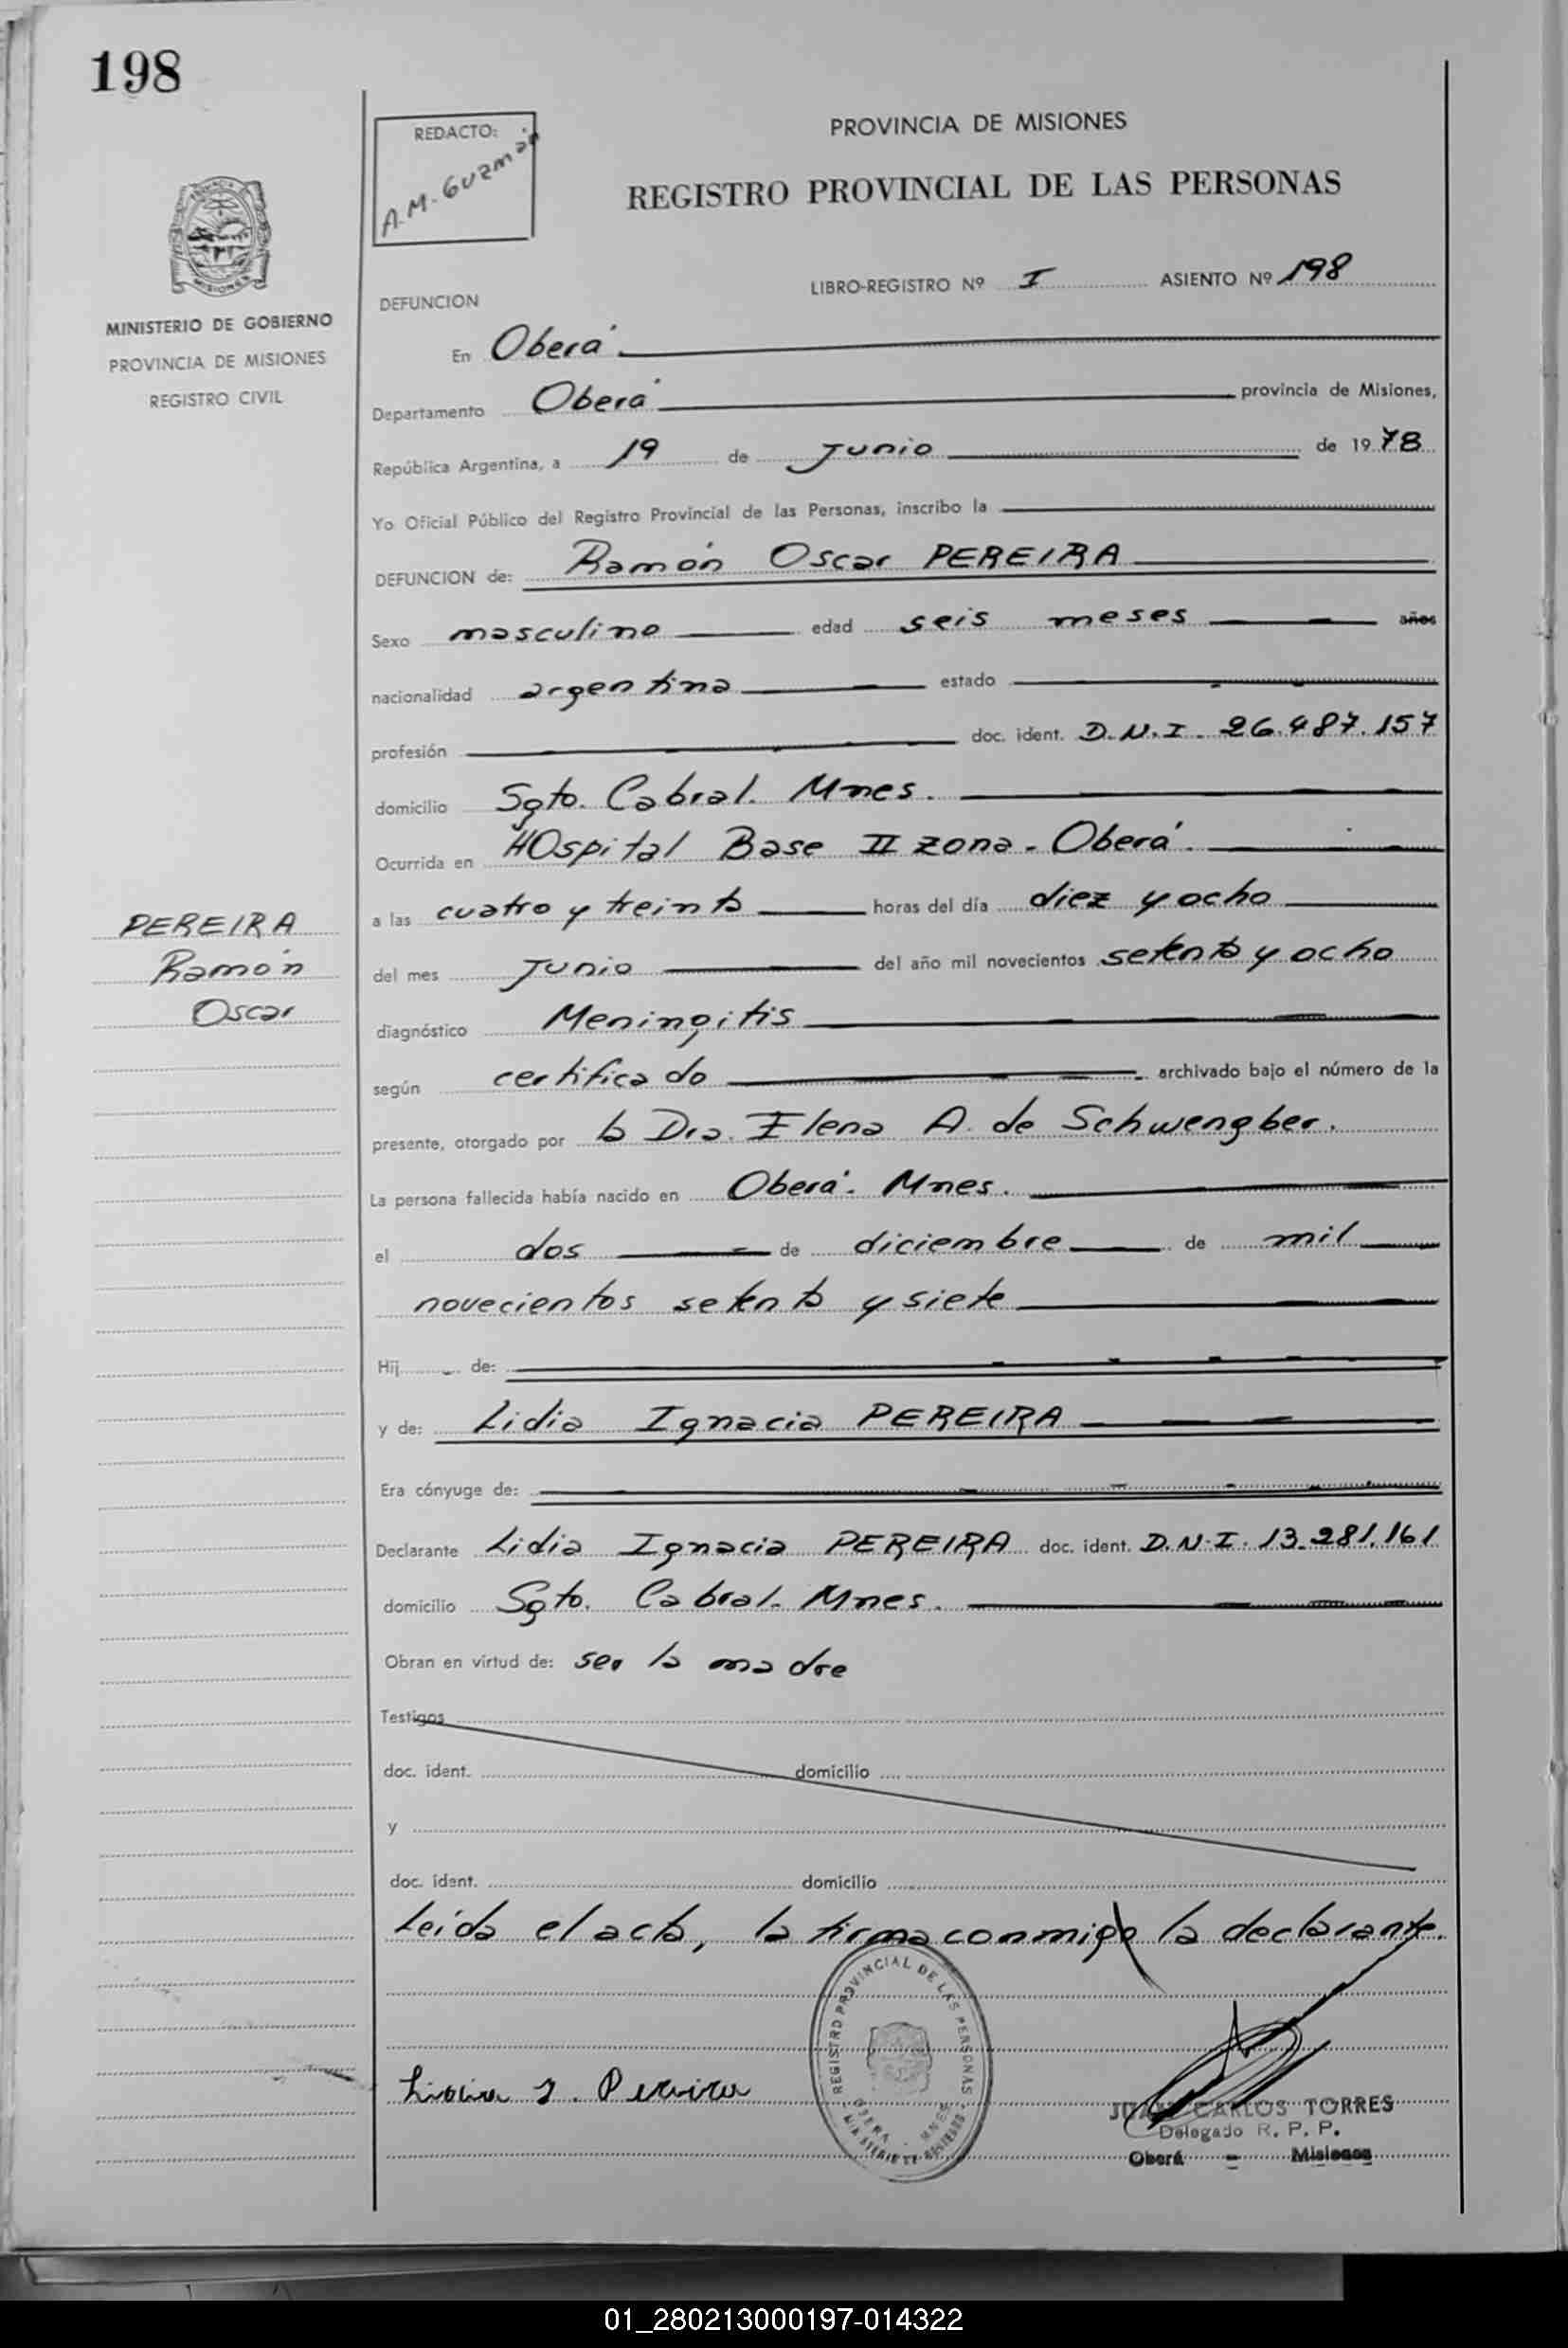 198
REDACTO:
A.M. Guzmán
PROVINCIA DE MISIONES
REGISTRO PROVINCIAL DE LAS PERSONAS
LIBRO-REGISTRO Nº I ASIENTO Nº 198
MINISTERIO DE GOBIERNO
PROVINCIA DE MISIONES
REGISTRO CIVIL
DEFUNCION
En Oberá
Departamento Oberá provincia de Misiones,
República Argentina, a 19 de Junio de 1978
Yo Oficial Público del Registro Provincial de las Personas, inscribo la
DEFUNCION de: Ramón Oscar PEREIRA
Sexo masculino edad seis meses años
nacionalidad argentina estado
profesión doc. ident. D.N.I. 26.487.157
domicilio Sgto. Cabral. Mnes.
Ocurrida en HOspital Base II zona - Oberá.
PEREIRA
Ramón
Oscar
a las cuatro y treinta horas del día diez y ocho
del mes Junio del año mil novecientos setenta y ocho
diagnóstico Meningitis
según certificado archivado bajo el número de la
presente, otorgado por la Dra. Elena A. de Schwengber.
La persona fallecida había nacido en Oberá. Mnes.
el dos de diciembre de mil
novecientos setenta y siete
Hij de:
y de: Lidia Ignacia PEREIRA
Era cónyuge de:
Declarante Lidia Ignacia PEREIRA doc. ident. D.N.I. 13.281.161
domicilio Sgto. Cabral. Mnes.
Obran en virtud de: ser la madre
Testigos
doc. ident. domicilio
y
doc. ident. domicilio
Leída el acta, la firma conmigo la declarante.
REGISTRO PROVINCIAL DE LAS PERSONAS
OBERA - MNES
I. Pereira
JUAN CARLOS TORRES
Delegado R. P. P.
Oberá - Misiones
01_280213000197-014322